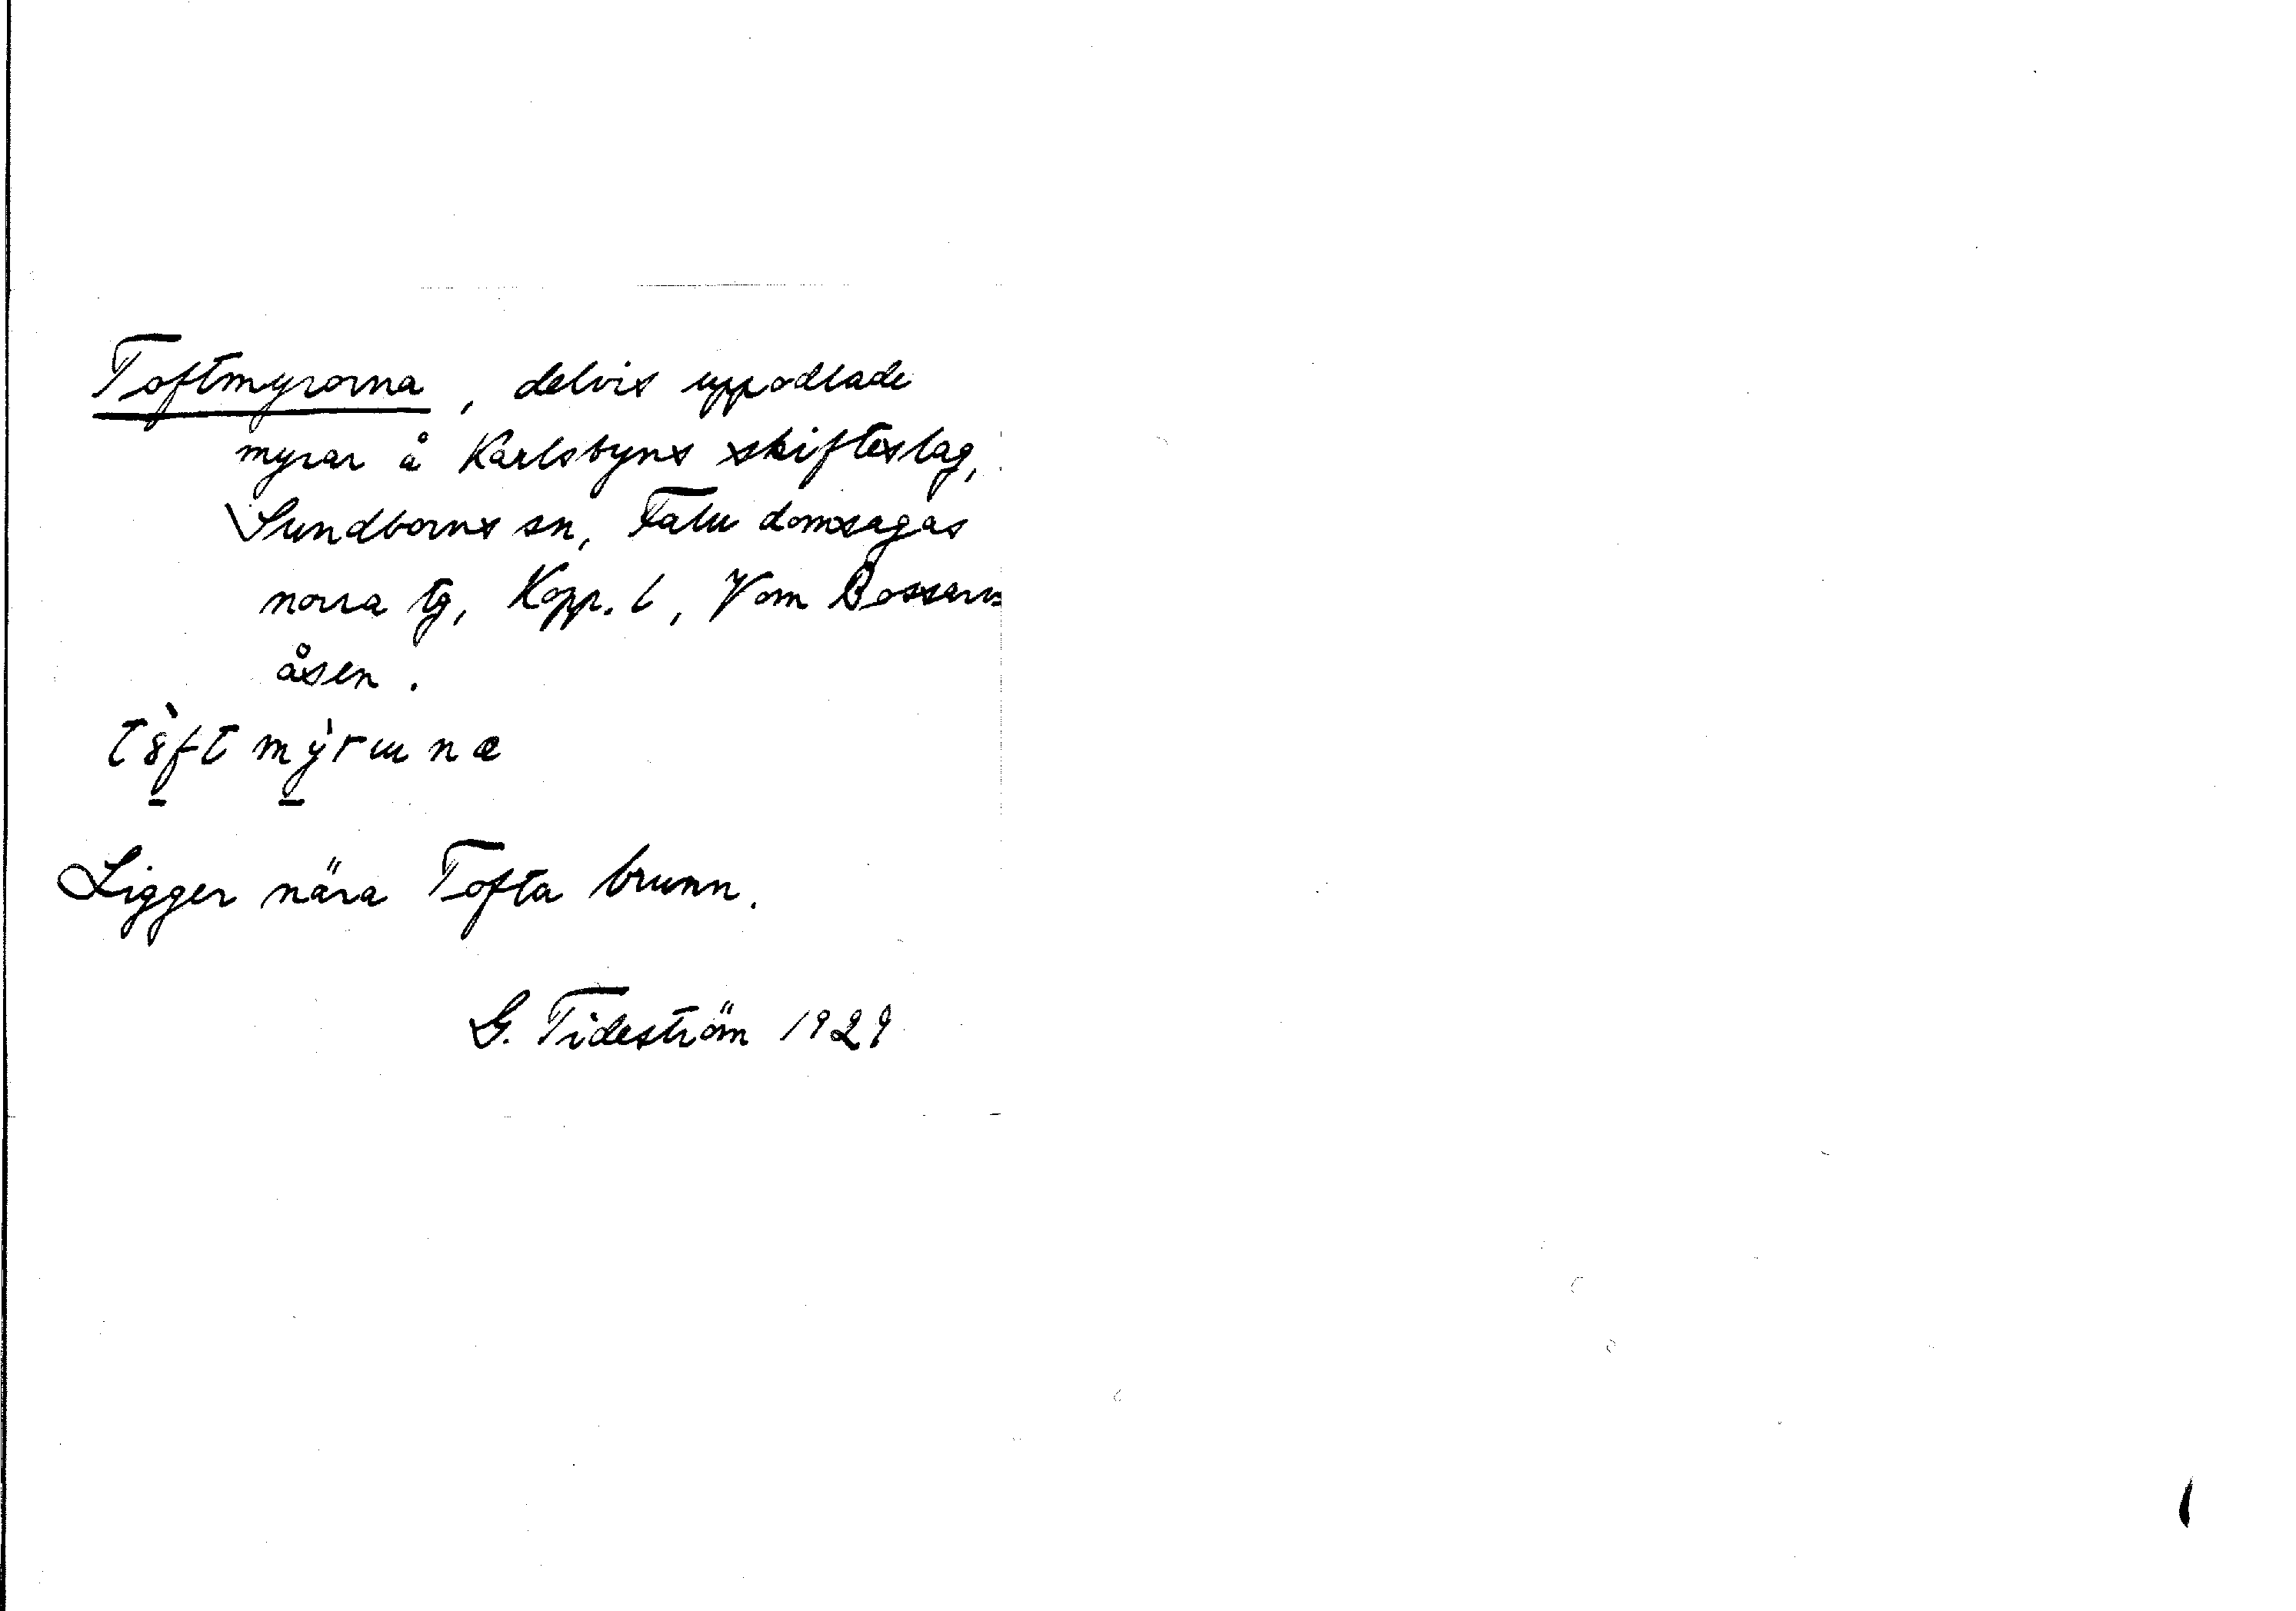 Toftmyrorna, delvis uppodlade
myrar å Karlsbyns skifteslag,
Sundborns sn, Falu domsagas
norra tg, Kopp. l, V om Bossarvs
åsen.
Ligger nära Tofta brunn.
G. Tideström 1929